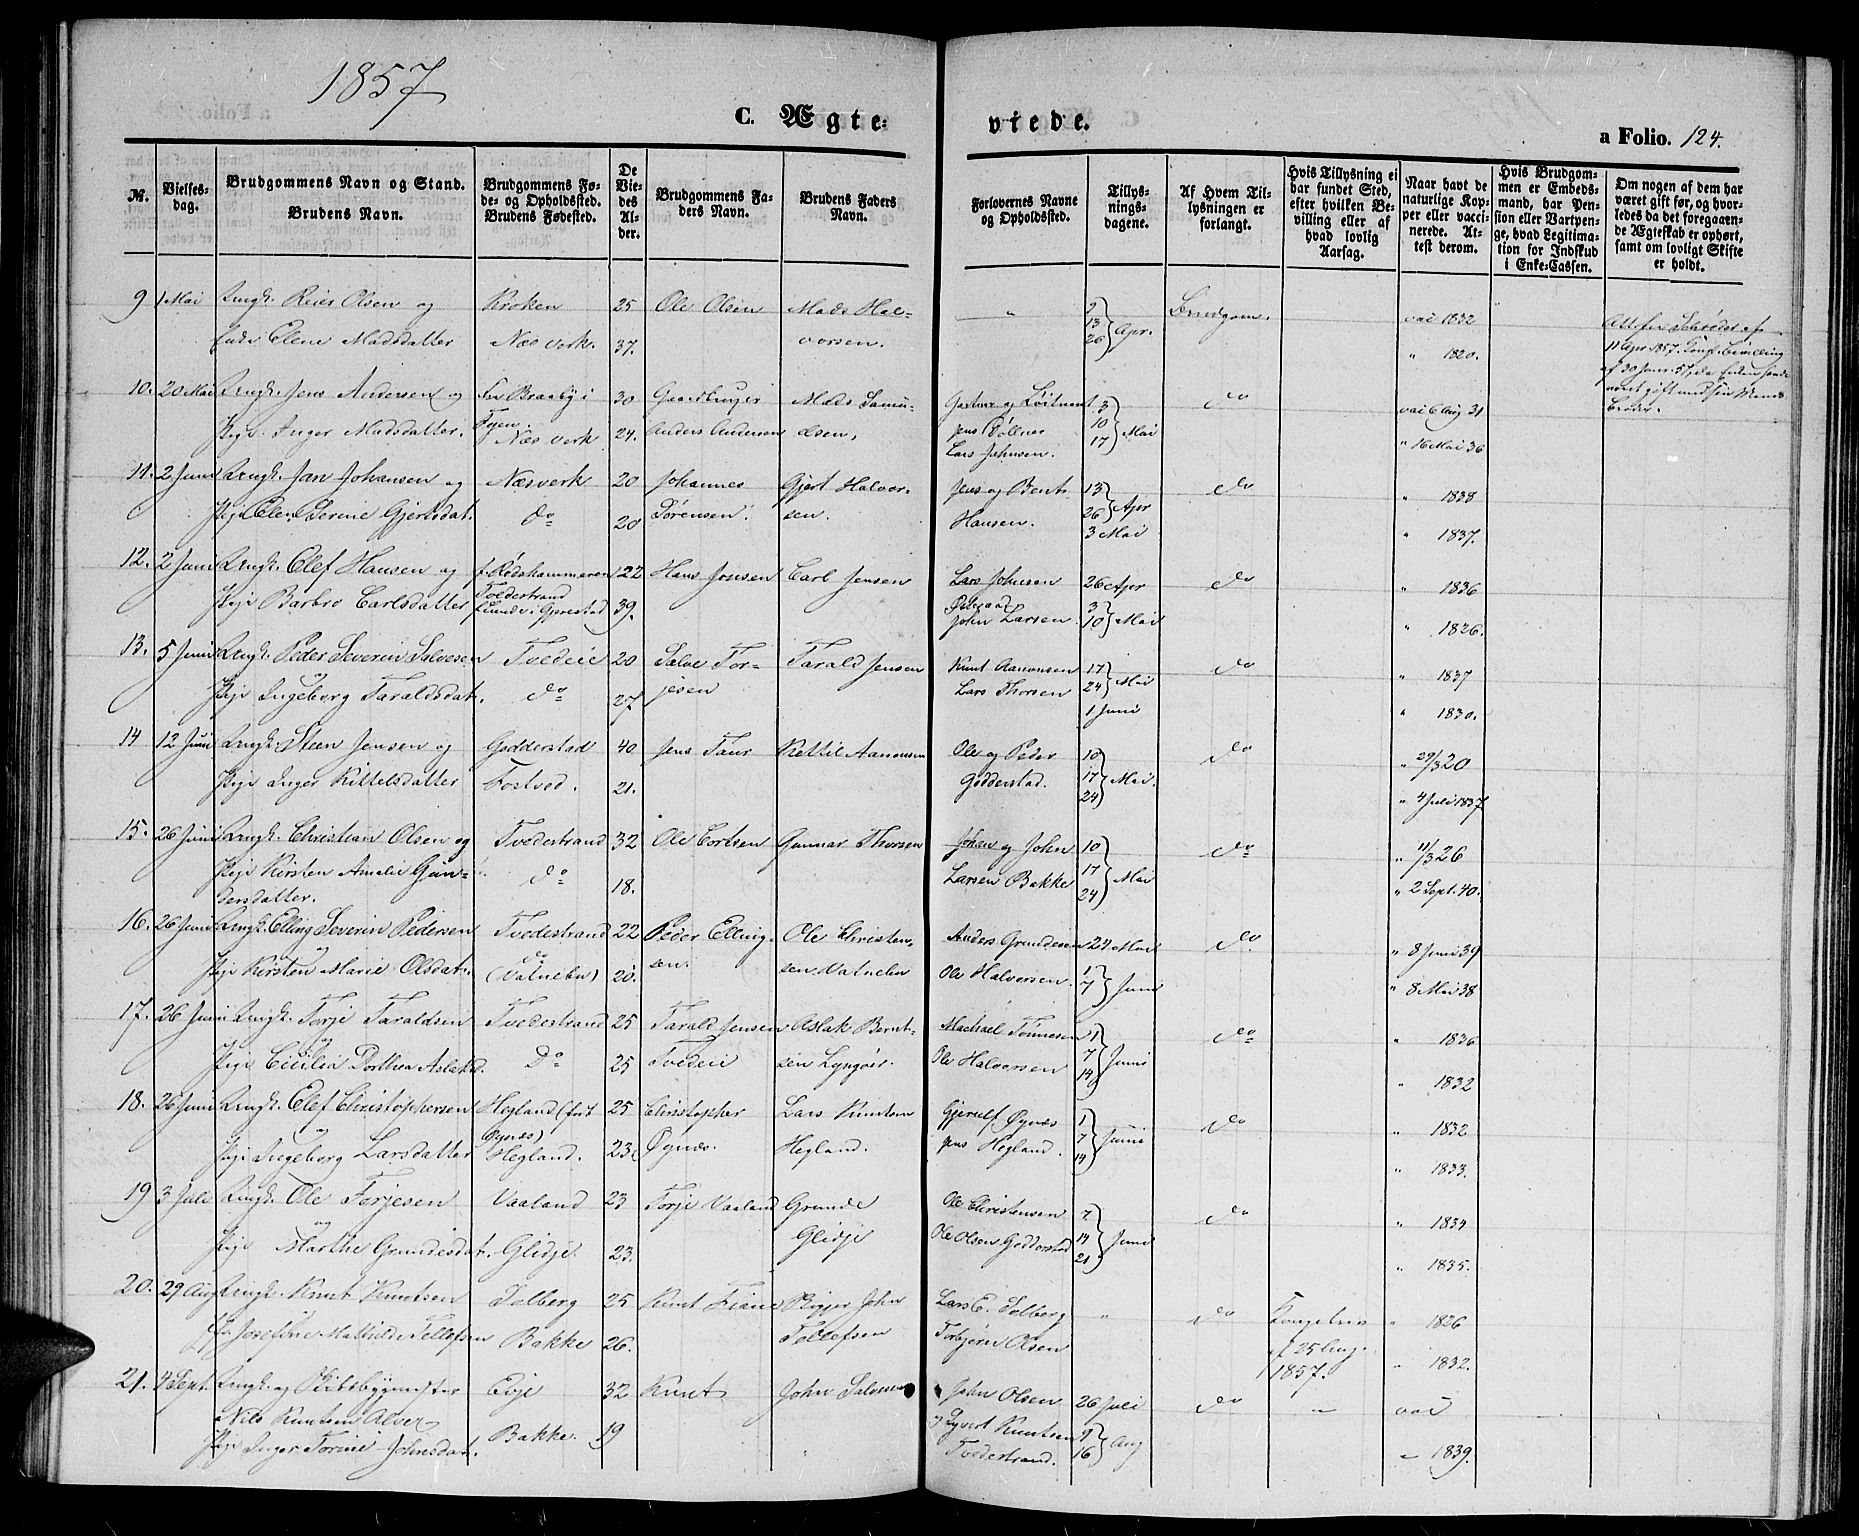 1857
C. Ægte=
viede.
a Folio. 124.
№.
Vielses-
dag.
Brudgommens Navn og Stand.
Brudens Navn.
Brudgommens Fø-
de- og Opholdsted.
Brudens Fødested.
De
Vie-
des
Al-
der.
Brudgommens Fa-
ders Navn.
Brudens Faders
Navn.
Forlovernes Navne
og Opholdssted.
Tillys-
nings-
dagene.
Af Hvem Til-
lysningen er
forlangt.
Hvis Tillysning ei
har fundet Sted,
efter hvilken Be-
villing eller af
hvad lovlig
Aarsag.
Naar havt de
naturlige Kop-
per eller vacci-
nerede. At-
test derom.
Hvis Brudgom-
men er Embeds-
mand, har Pen-
sion eller Vartpen-
ge, hvad Legitima-
tion for Indskud
i Enke-Cassen.
Om nogen af dem har
været gift før, og hvor-
ledes da det foregaaen-
de Ægteskab er ophørt,
samt om lovligt Skifte
er holdt.
9 1 Mai Ungk. Reier Olsen og Kroken 25 Ole Olsen Mads Hal- " 9 13 26 Apr. Brudgom. vac 1832
Enke Elene Madsdatter Næs verk. 37. vorsen. " 1820.
11 Apr 1857. Konf. Bevilling
10. 20 Mai Ungk. Jens Andersen og Braaby i 30 Gaardbruger Mads Samu- Løitnant 3 10 17 Mai do vac 6 Aug 31
Pige Inger Madsdatter. Næs verk 24. Anders Andersen elsen. Lars Johnsen. " 16 Mai 36
11. 2 Juni Ungk. Jan Johansen og Næsverk 20 Johannes Gjert Halvor- Jens og Bent 13 26 Apr 3 Mai do " 1838
Pige Elen Serine Gjertsdat. do 20 Sørensen. sen. Hansen. " 1837.
12. 2 Juni Ungk. Elef Hansen og f. Rødshammeren 22 Hans Jensen Carl Jensen Lars Johnsen 26 Apr do " 1836
Tvedestrand
Pige Barbro Carlsdatter f. Lunde i Gjerestad 39. John Larsen. 3 10 Mai " 1826.
13. 5 Juni Ungk. Peder Severin Salvesen Tvedeie 20 Salve Tor- Tarald Jensen Knut Aanonsen 17 24 Mai do " 1837
og
Pige Ingeborg Taraldsdat. do 27 jesen Lars Thorsen 1 Juni " 1830.
14 12 Juni Ungk. Steen Jensen og Godderstad 40 Jens Taur Kettil Aanonsen Ole og Peder 10 17 24 Mai. do " 29/3 20
Pige Inger Kittelsdatter Fostved. 21. Godderstad. " 4 Juli 1837
15. 26 Juni Ungk. Christian Olsen og Tvedestrand 32 Ole Tortsen Gunnar Thorsen Johan og John 10 17 24 Mai do " 11/3 26
Pige Kirsten Amalie Gun- do 18. Larsen Bakke " 2 Sept. 40.
dersdatter.
16. 26 Juni Ungk. Elling Severin Pedersen Tvedestrand 22 Peder Elling- Ole Christen- Anders Grundesen 24 Mai do " 8 Juni 39
og do
Pige Kirsten Marie Olsdat. (Vatnebu) 20. sen. sen Vatnebu Ole Halvorsen. 1 7 Juni " 8 Mai 38
17. 26 Juni Ungk. Torje Taraldsen Tvedestrand 25 Tarald Jensen Aslak Bernt- Machael Tønnesen 1 7 14 Juni do " 1836
og
Pige Cicilia Dorthea Aslaksd. Do 25 Tvedeie sen Lyngøer. Ole Halvorsen " 1832
18. 26 Juni Ungk. Elef Christophersen Hegland (født 25 Christopher Lars Knutsen Gjerulf Øynæs 1 7 14 Juni do " 1832
og Øynæs)
Pige Ingeborg Larsdatter Hegland. 23. Øynæs. Hegland. Jens Hegland. " 1833.
19 3 Juli Ungk. Ole Torjesen Vaaland 23 Torje Vaaland Grunde Ole Christensen 7 14 21 Juni do " 1834
og
Pige Marthe Grundesdat. Glidje 23. Glidje Ole Olsen Godderstad " 1835.
20. 29 Aug Ungk. Knut Knutsen Solberg 25 Knut Fiane John Lars E. Solberg " do " 1826
Josefine Mathilde Tellefsen Bakke 26. Tellefsen Torbjørn Olsen 25 Aug. 1857. " 1832.
21. 4 Sept. Ungk. og Skibsbygmester Evje 32 Knut John Salvesen John Olsen 26 Juli do " vac
Nils Knutsen Alver
Pige Inger Torine Johnsdat. Bakke. 19 Syvert Knutsen Tvedestrand. 9 16 Aug " 1839.